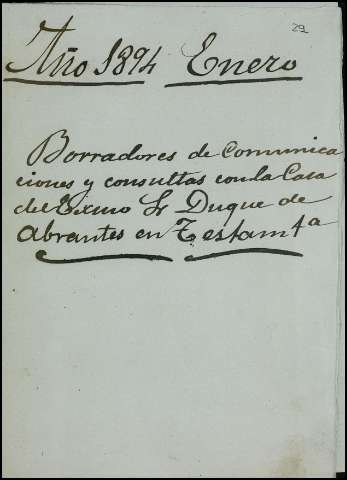 29
Año 1894 Enero
Borradores de comunica
ciones y consultas con la Casa
del Exmo Sr Duque de
Abrantes en Testamta